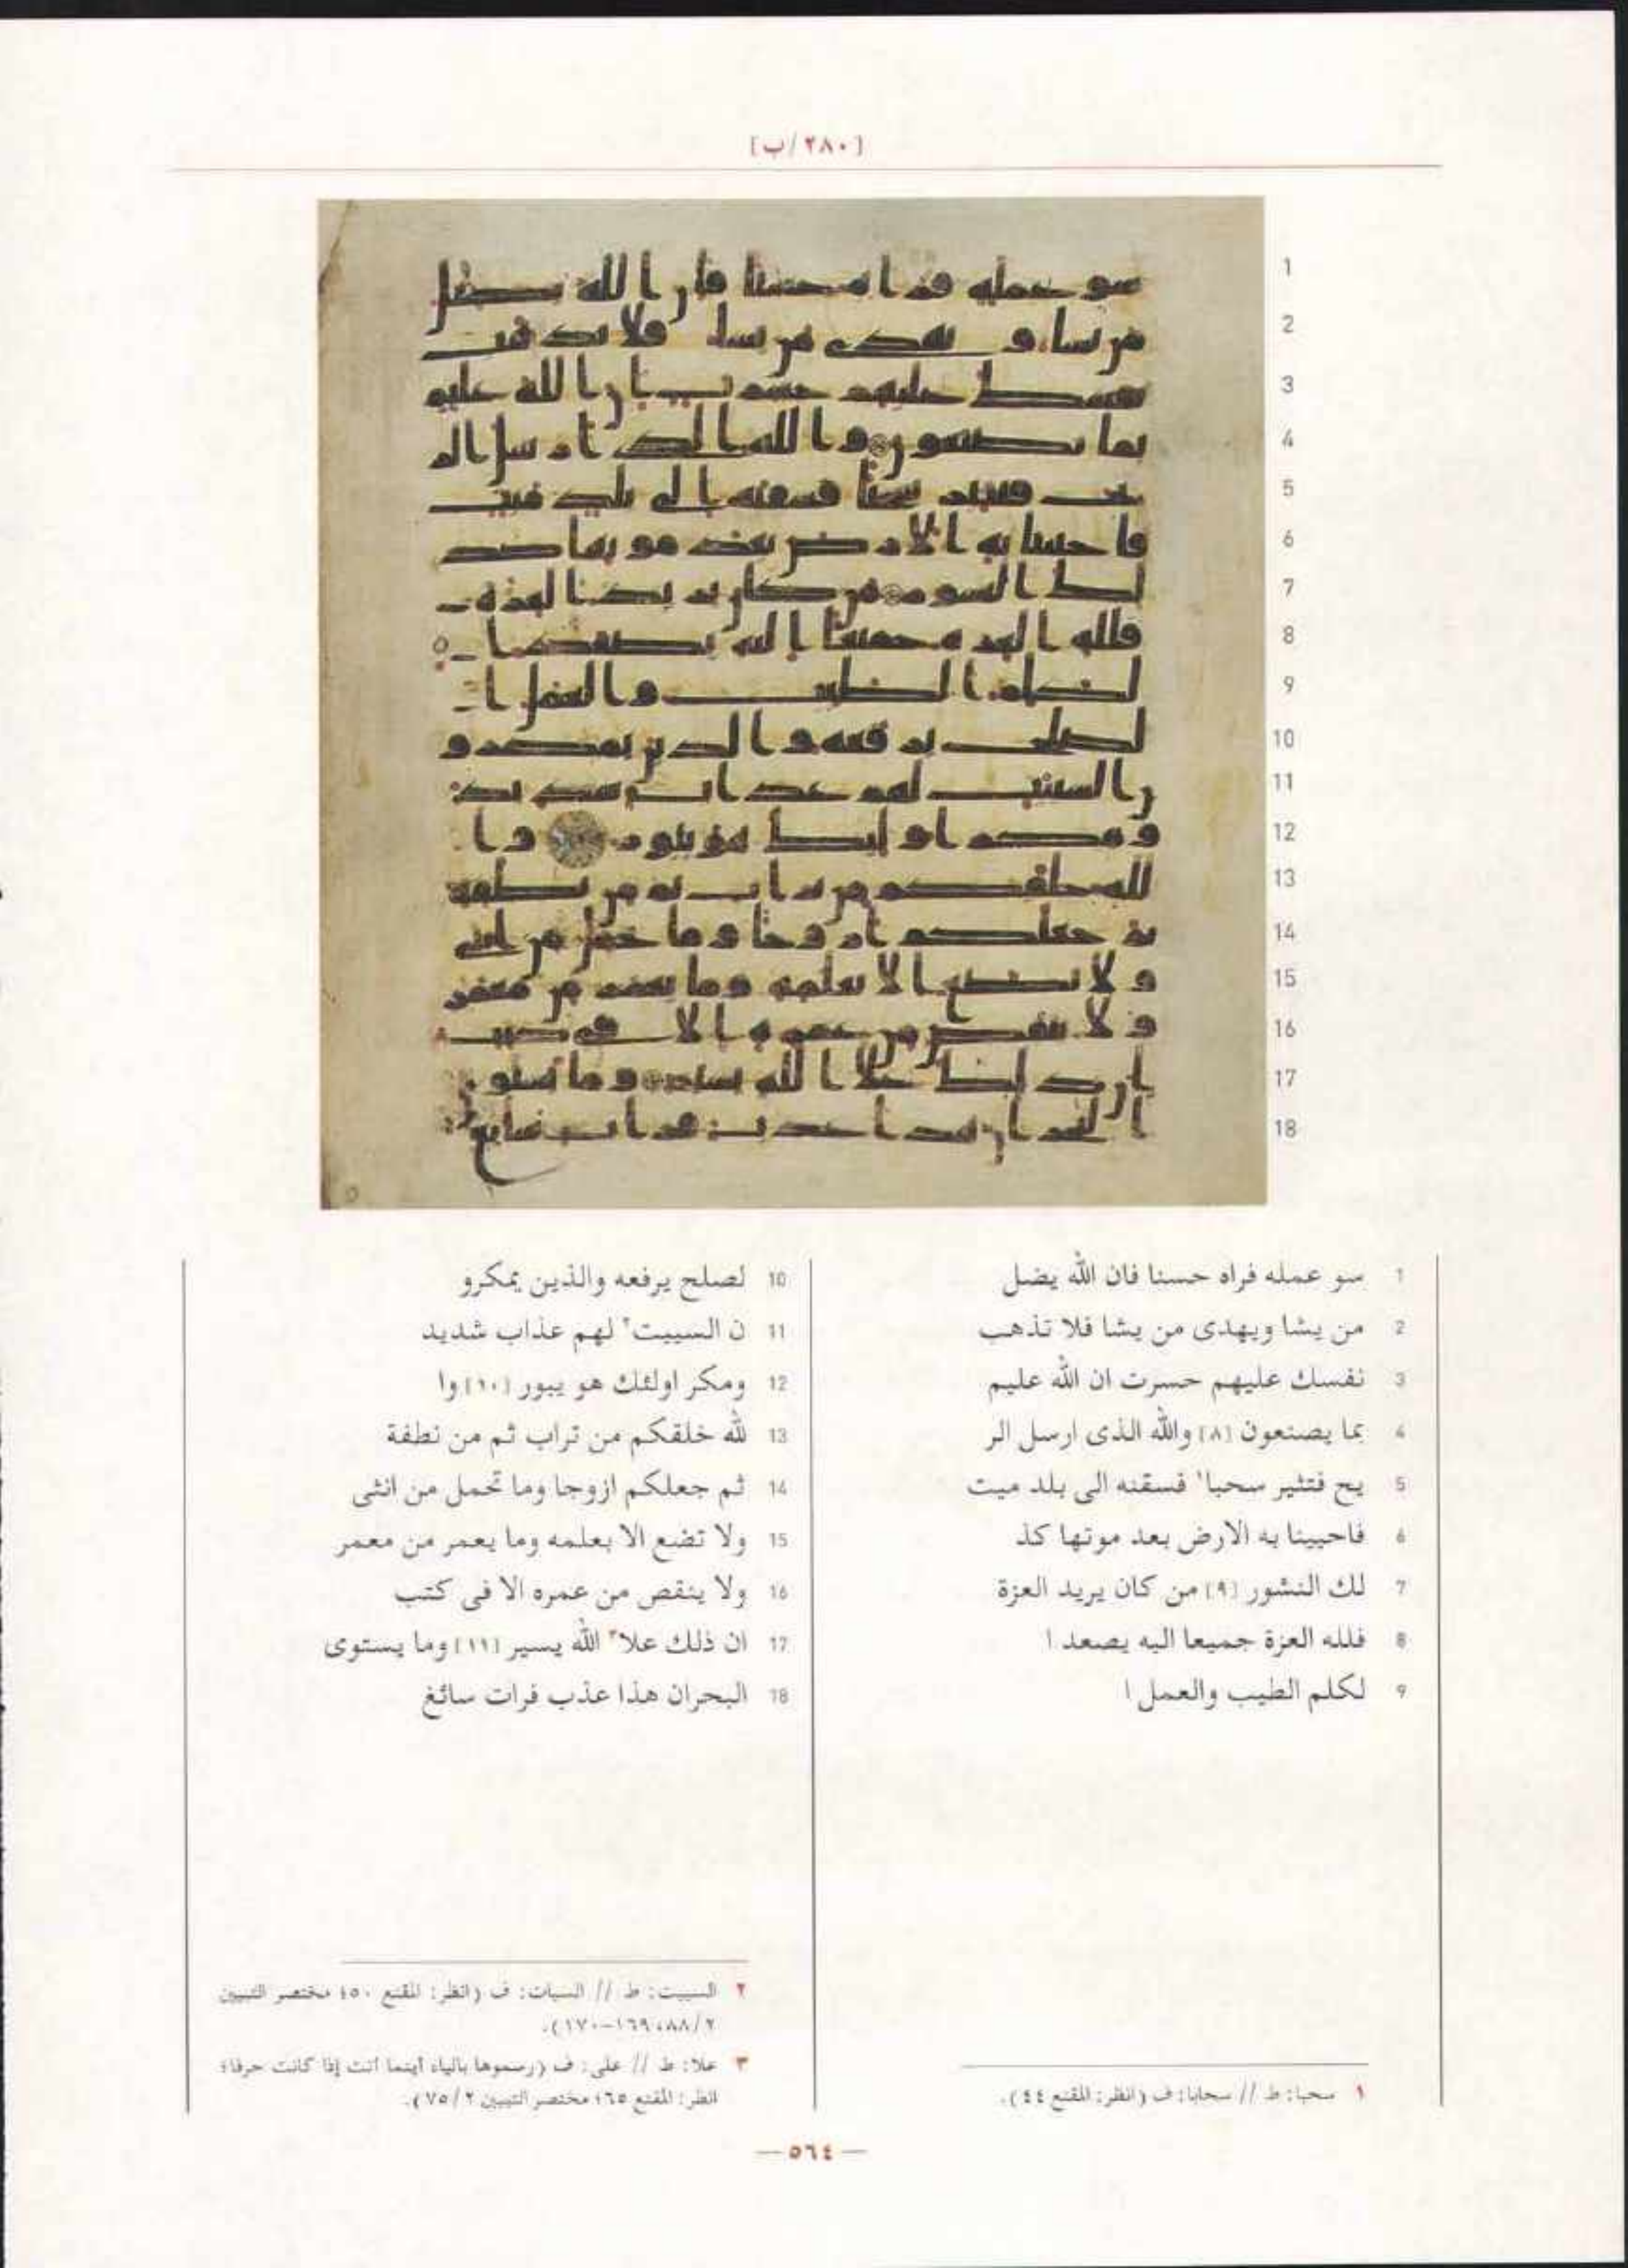 [٢٨٠/ب]
1
2
3
4
5
6
7
8
9
10
11
12
13
14
15
16
17
18
1 سو عمله فراه حسنا فان الله يضل
2 من يشا ويهدى من يشا فلا تذهب
3 نفسك عليهم حسرت ان الله عليم
4 بما يصنعون [٨] والله الذى ارسل الر
5 يح فتثير سحبا١ فسقنه الى بلد ميت
6 فاحيينا به الارض بعد موتها كذ
7 لك النشور [٩] من كان يريد العزة
8 فلله العزة جميعا اليه يصعد ا
9 لكلم الطيب والعمل ا
10 لصلح يرفعه والذين يمكرو
11 ن السييت٢ لهم عذاب شديد
12 ومكر اولئك هو يبور [١٠] وا
13 لله خلقكم من تراب ثم من نطفة
14 ثم جعلكم ازوجا وما تحمل من انثى
15 ولا تضع الا بعلمه وما يعمر من معمر
16 ولا ينقص من عمره الا فى كتب
17 ان ذلك علا٣ الله يسير [١١] وما يستوى
18 البحران هذا عذب فرات سائغ
١ سحبا: ط // سحابا: ف (انظر: المقنع ٤٤).
٢ السييت: ط // السيات: ف (انظر: المقنع ٥٠؛ مختصر التبيين
٢/٨٨، ١٦٩-١٧٠).
٣ علا: ط // على: ف (رسموها بالياء أينما أتت إذا كانت حرفا؛
انظر: المقنع ٦٥؛ مختصر التبيين ٢/٧٥).
— ٥٦٤ —